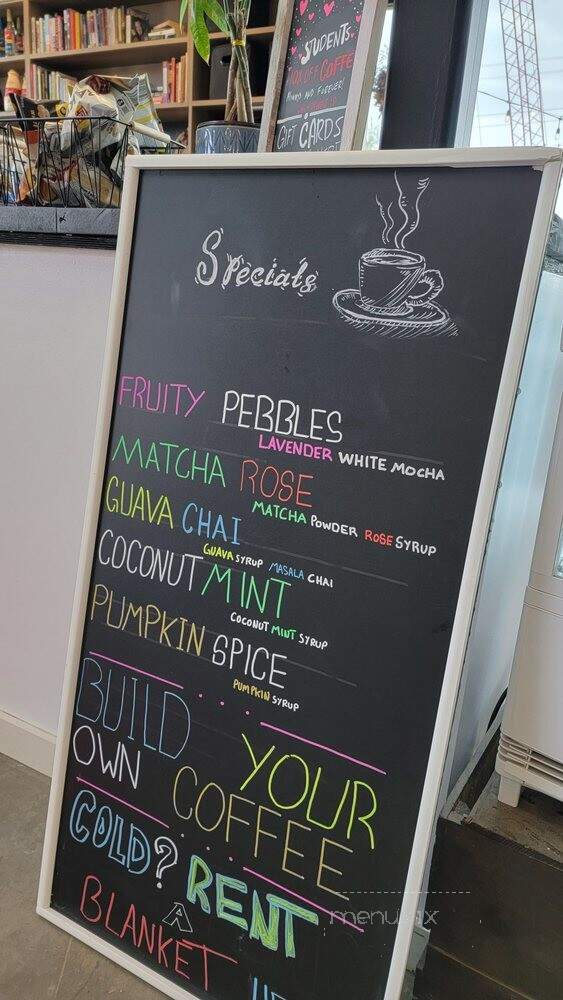 STUDENTS
10% OFF COFFEE
ALWAYS AND FOREVER!
GIFT CARDS
Specials
FRUITY PEBBLES
LAVENDER WHITE MOCHA
MATCHA ROSE
MATCHA POWDER ROSE SYRUP
GUAVA CHAI
GUAVA SYRUP MASALA CHAI
COCONUT MINT
COCONUT MINT SYRUP
PUMPKIN SPICE
PUMPKIN SYRUP
BUILD YOUR
OWN COFFEE
COLD? RENT
A
BLANKET
menu